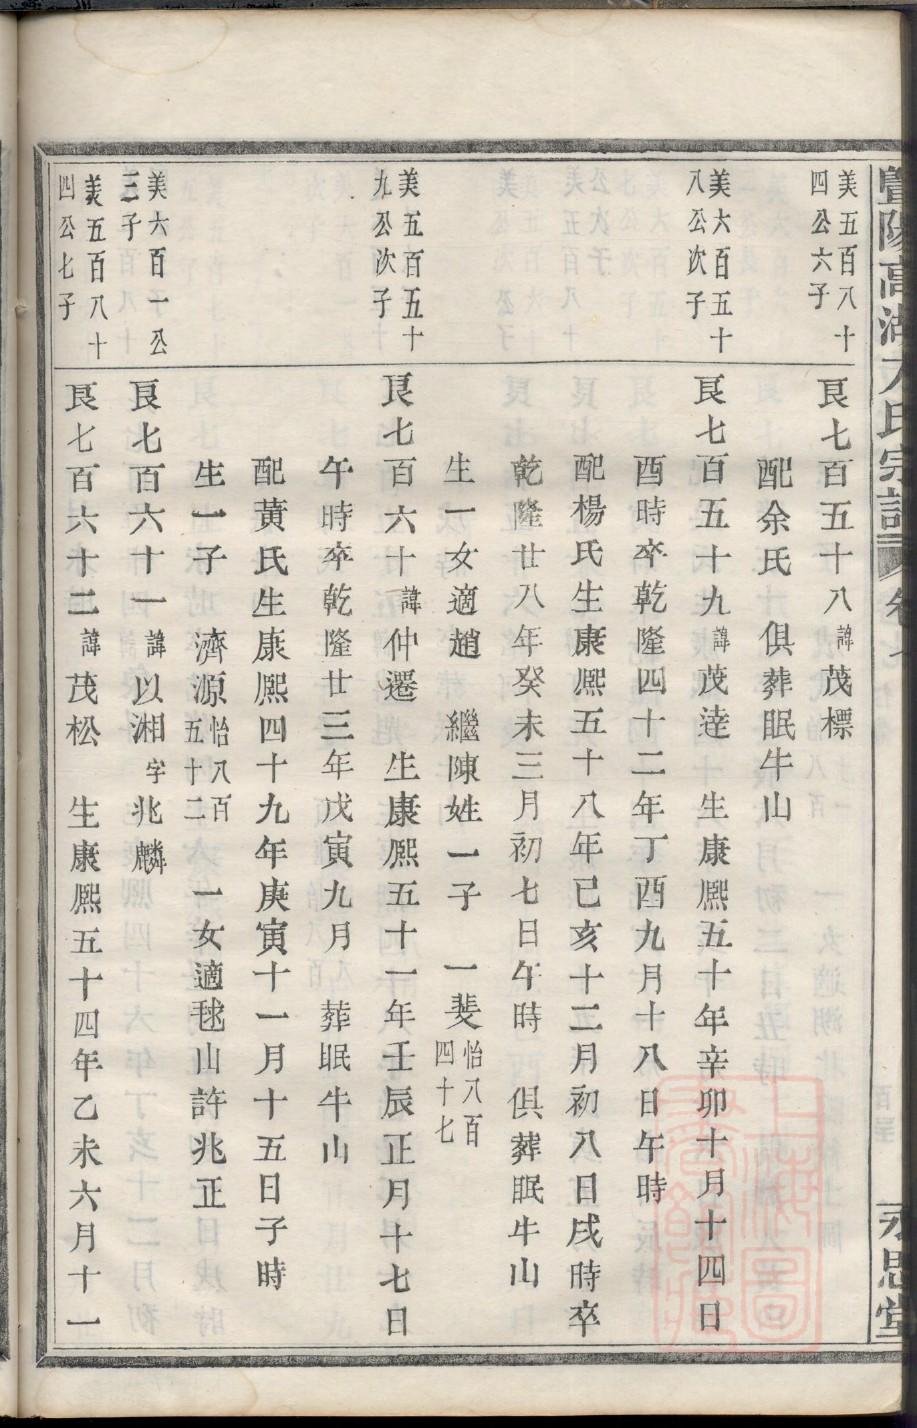 美五百八十
四公六子
艮七百五十八諱茂標
配余氏 俱葬眠牛山
美六百五十
八公次子
艮七百五十九諱茂逹 生康熈五十年辛卯十月十四日
酉時卒乾隆四十二年丁酉九月十八日午時
配楊氏生康熈五十八年已亥十二月初八日戌時卒
乾隆廿八年癸未三月初七日午時 俱葬眠牛山
生一女適趙 繼陳姓一子 一斐怡八百四十七
美五百五十
九公次子
艮七百六十諱仲遷 生康熈五十一年壬辰正月十七日
午時卒乾隆廿三年戊寅九月 葬眠牛山
配黄氏生康熈四十九年庚寅十一月十五日子時
生一子 濟源怡八百五十二 一女適毬山許兆正
美六百一公
三子
艮七百六十一諱以湘字兆麟
美五百八十
四公七子
艮七百六十二諱茂松 生康熈五十四年乙未六月十一